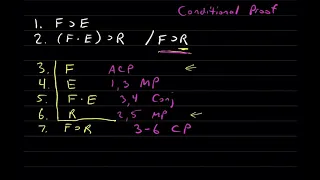 Conditional Proof
1. F ⊃ E
2. (F · E) ⊃ R /F ⊃ R
3. F ACP
4. E 1,3 MP
5. F · E 3,4 Conj
6. R 2,5 MP
7. F ⊃ R 3-6 CP